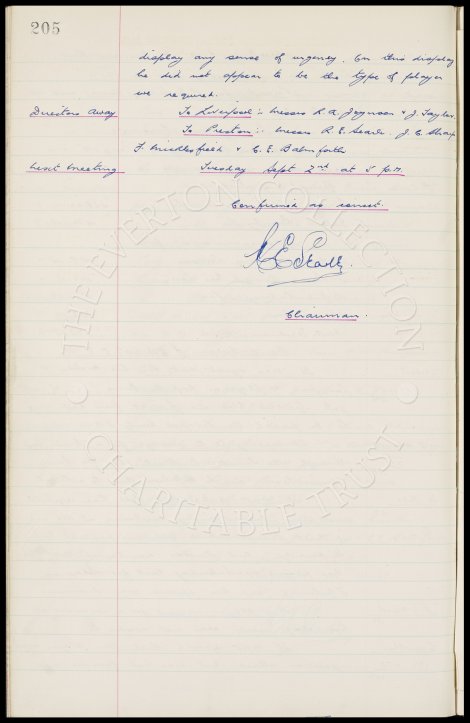 205
display any sense of urgency. On this display
he did not appear to be the type of player
we required.
Directors away To Liverpool:- Messrs R. A. Joynson & J. Taylor.
To Preston:- Messrs R. E. Searle, J. C. Sharp
F. Micklesfield & C. E. Balmforth
Next Meeting Tuesday Sept 2nd at 5 p.m.
Confirmed as correct.
R E Searle.
Chairman.
THE EVERTON COLLECTION
CHARITABLE TRUST